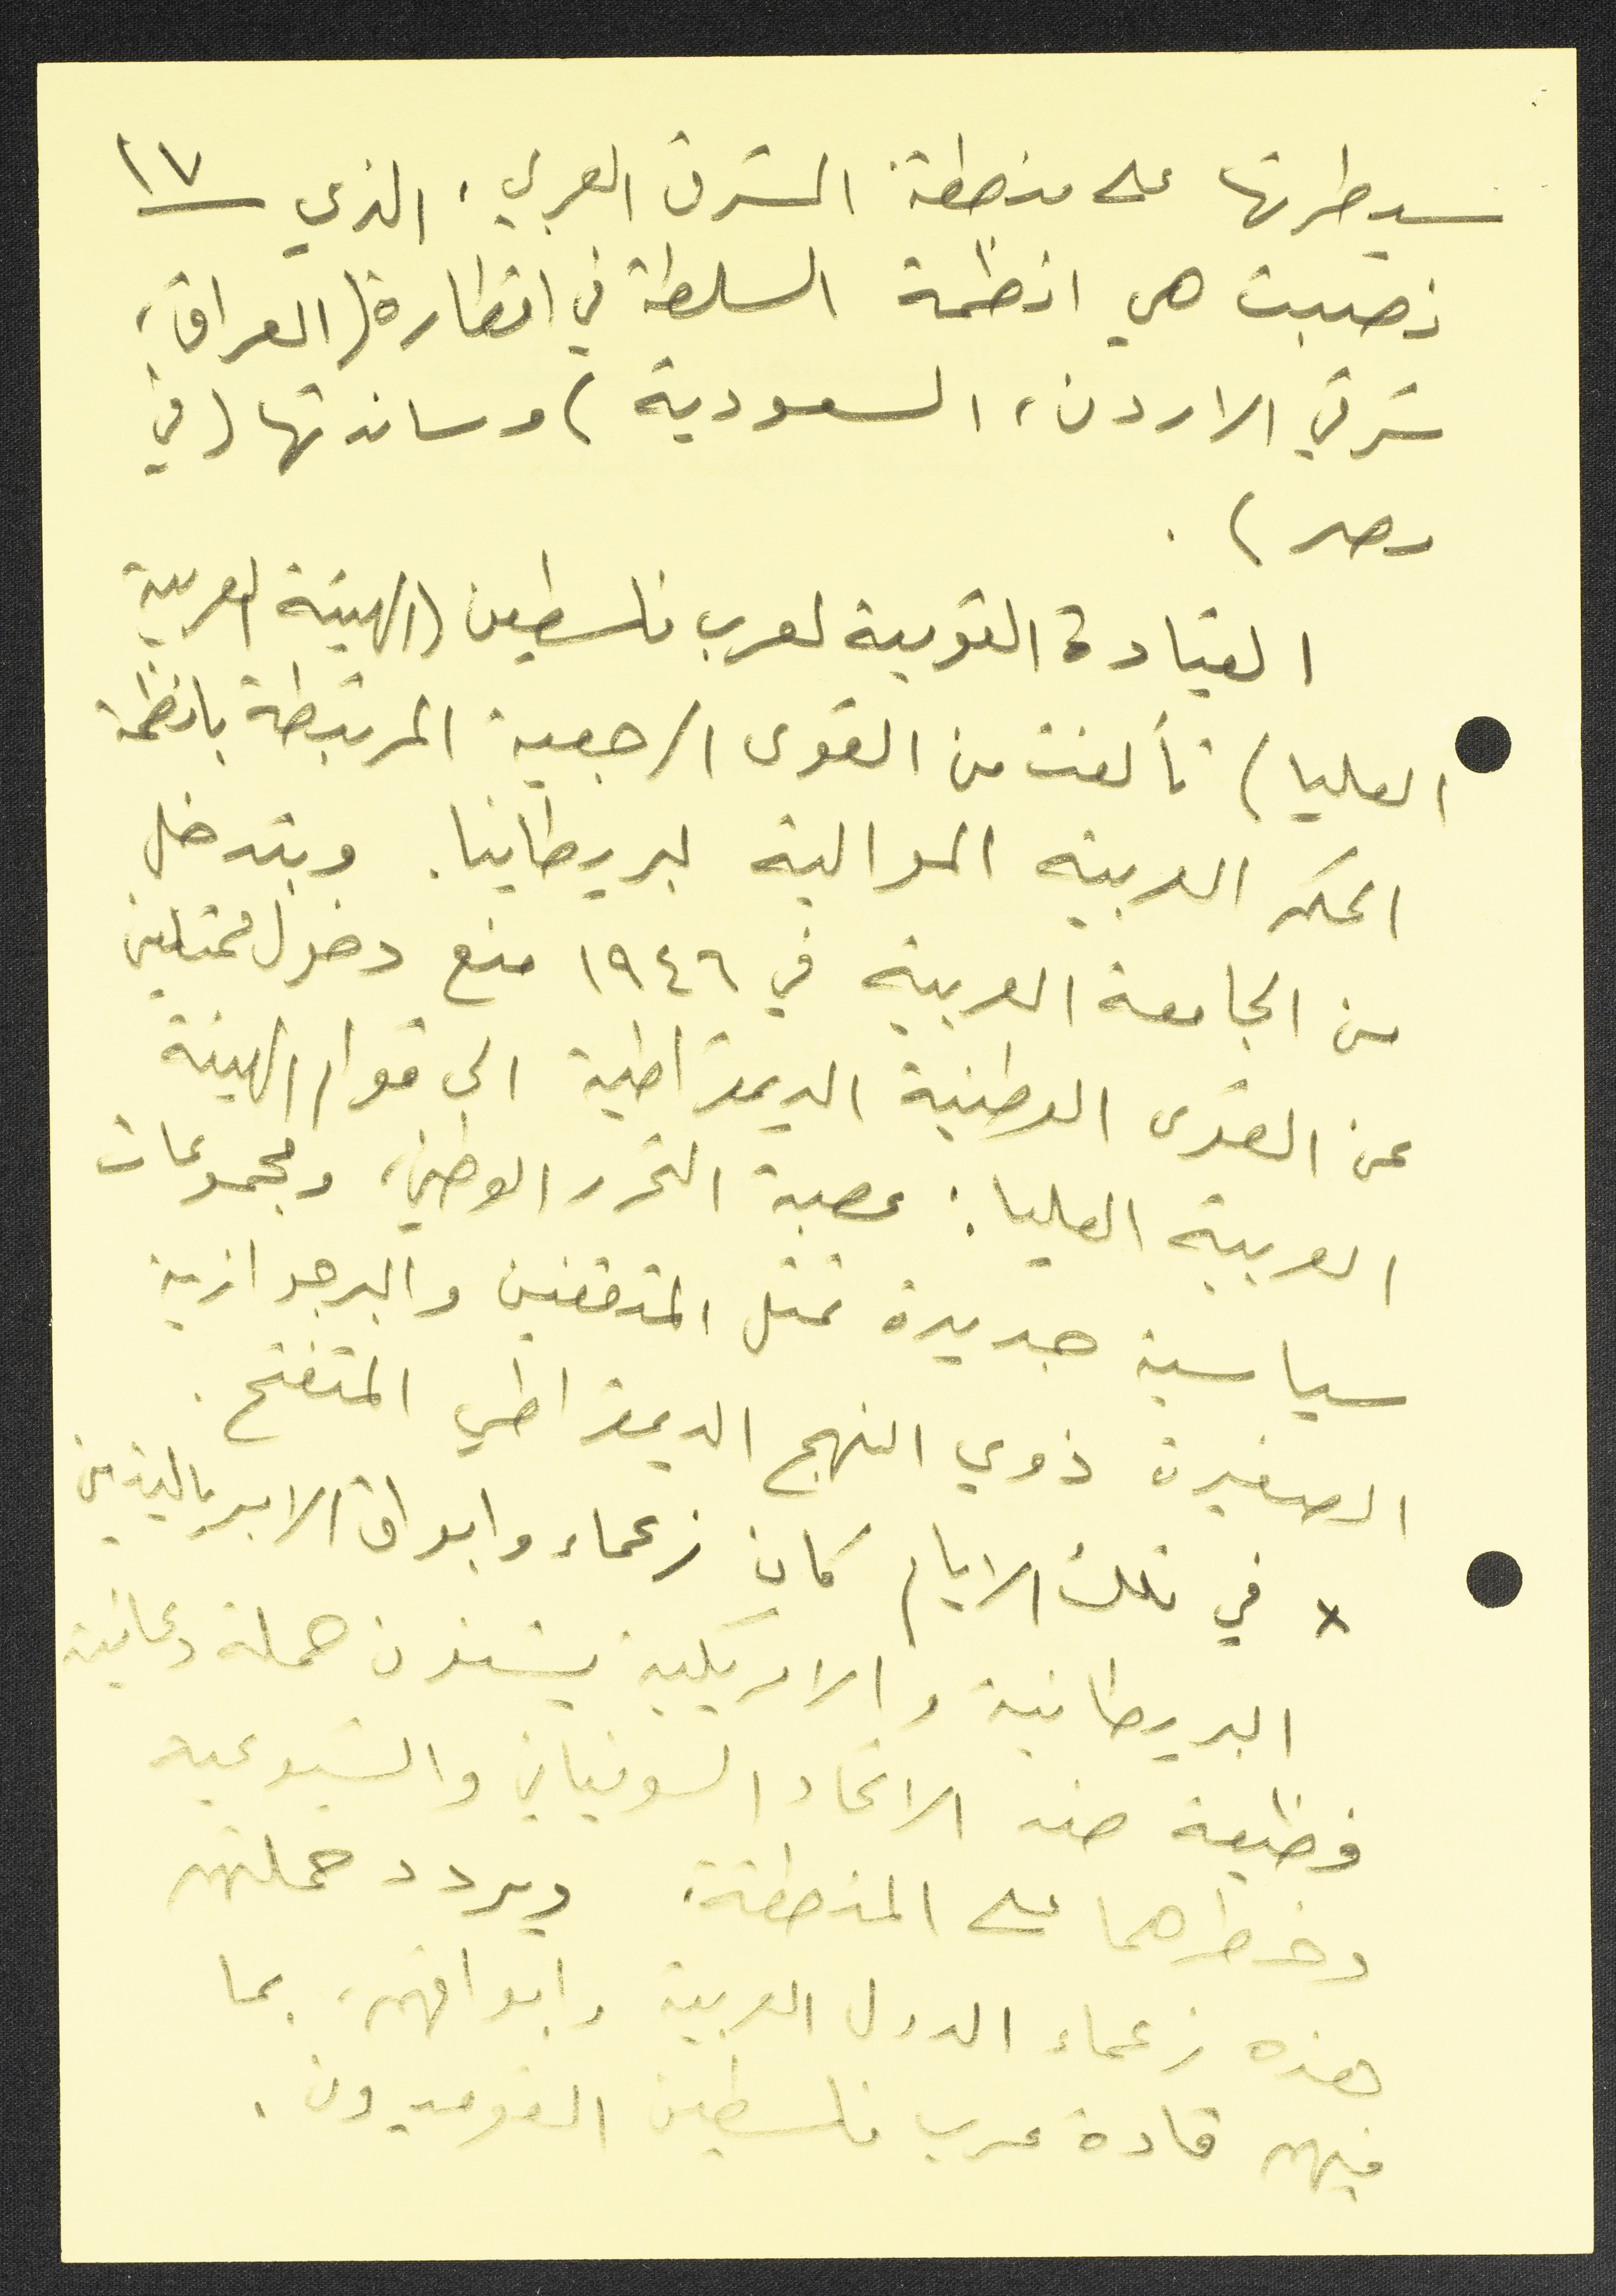 سيطرتها على منطقة المشرق العربي، الذي ١٧
نصبت هي انظمة السلطة في اقطاره (العراق،
شرقي الاردن، السعودية) وساندتها (في
مصر).
القيادة القومية لعرب فلسطين (الهيئة العربية
العليا) تألفت من القوى الرجعية المرتبطة بانظمة
الحكم العربية الموالية لبريطانيا. وبتدخل
من الجامعة العربية في ١٩٤٦ منع دخول ممثلين
عن القوى الوطنية الديمقراطية الى قوام الهيئة
العربية العليا: عصبة التحرر الوطني، ومجموعات
سياسية جديدة تمثل المثقفين والبرجوازية
الصغيرة ذوي النهج الديمقراطي المتفتح.
x في تلك الايام كان زعماء وابواق الامبرياليتين
البريطانية والامريكية يشنون حملة دعائية
فظيعة ضد الاتحاد السوفياتي والشيوعية
وخطرهما على المنطقة. ويردد حملتهم
هذه زعماء الدول العربية وابواقهم، بما
فيهم قادة عرب فلسطين القوميون.